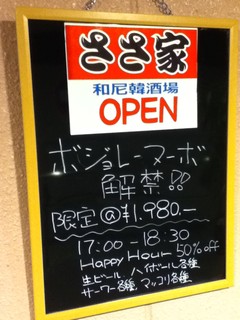 ささ家
和尼韓酒場
OPEN
ボジョレーヌーボ
解禁!!
限定@¥1,980.-
17:00-18:30
Happy Hour 50% off
生ビール ハイボール各種
サワー各種 マッコリ各種